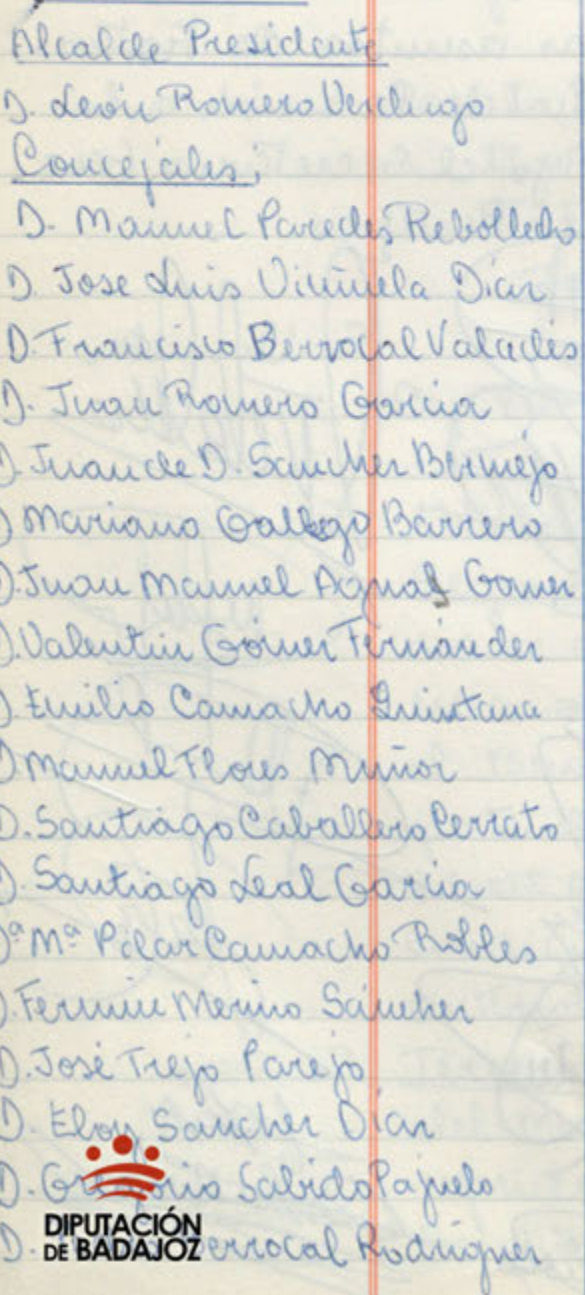 Alcalde Presidente
D. León Romero Verdugo
Concejales;
D. Manuel Paredes Rebolledo
D. Jose Luis Viñuela Díaz
D. Francisco Berrocal Valadés
D. Juan Romero Garcia
D. Juan de D. Sanchez Bermejo
D Mariano Gallego Barrero
D. Juan Manuel Gomez
D. Valentin Gómez Fernández
D. Emilio Camacho Quintana
D Manuel Flores Muñoz
D. Santiago Caballero Cerrato
D. Santiago Leal Garcia
Dª Mª Pilar Camacho Robles
D. Fermin Merino Sánchez
D. José Trejo Parejo
D. Eloy Sanchez Díaz
D. Gregorio Sabido Pajuelo
D. Berrocal Rodríguez
DIPUTACIÓN
DE BADAJOZ